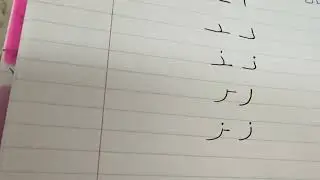 د ـد
ذ ـذ
ر ـر
ز ـز